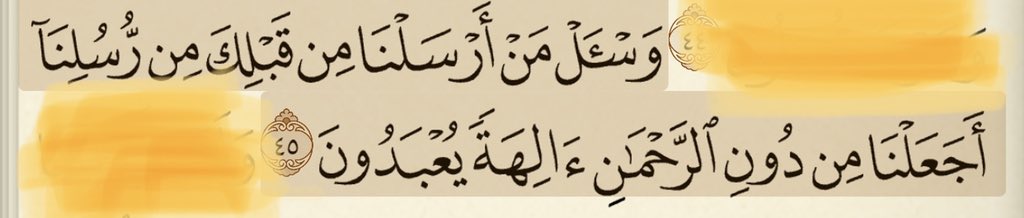 ٤٤ وَسْـَٔلْ مَنْ أَرْسَلْنَا مِن قَبْلِكَ مِن رُّسُلِنَآ
أَجَعَلْنَا مِن دُونِ ٱلرَّحْمَـٰنِ ءَالِهَةً يُعْبَدُونَ ٤٥